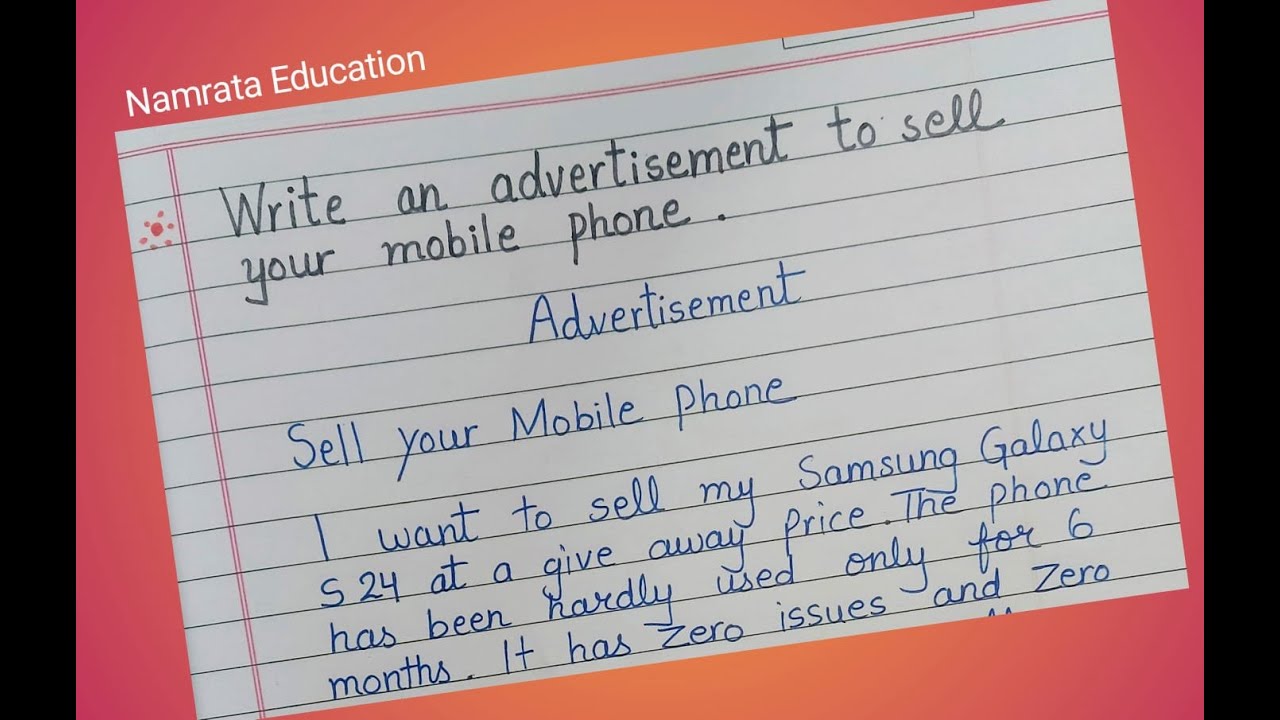 Namrata Education
Write an advertisement to sell
your mobile phone.
Advertisement
Sell your Mobile phone
I want to sell my Samsung Galaxy
S24 at a give away price. The phone
has been hardly used only for 6
months. It has zero issues and zero